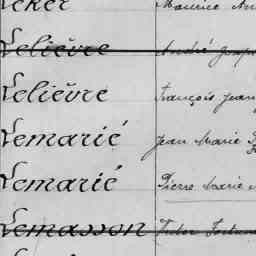 Leker Maurice
Lelièvre André
Lelièvre François Jean
Lemarié Jean Marie
Lemarié Pierre Marie
Lemasson Victor